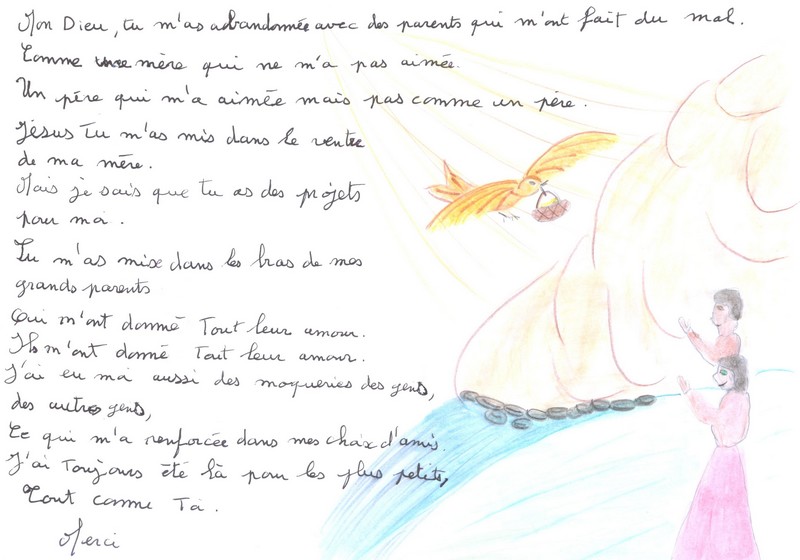 Mon Dieu, tu m'as abandonnée avec des parents qui m'ont fait du mal.
Comme une mère qui ne m'a pas aimée.
Un père qui m'a aimée mais pas comme un père.
Jésus Tu m'as mis dans le ventre
de ma mère.
Mais je sais que tu as des projets
pour moi.
Tu m'as mise dans les bras de mes
grands parents
Qui m'ont donné Tout leur amour.
Ils m'ont donné Tout leur amour.
J'ai eu moi aussi des moqueries des gens,
des autres gens,
Ce qui m'a renforcée dans mes choix d'amis.
J'ai Toujours été là pour les plus petits,
Tout comme Toi.
Merci